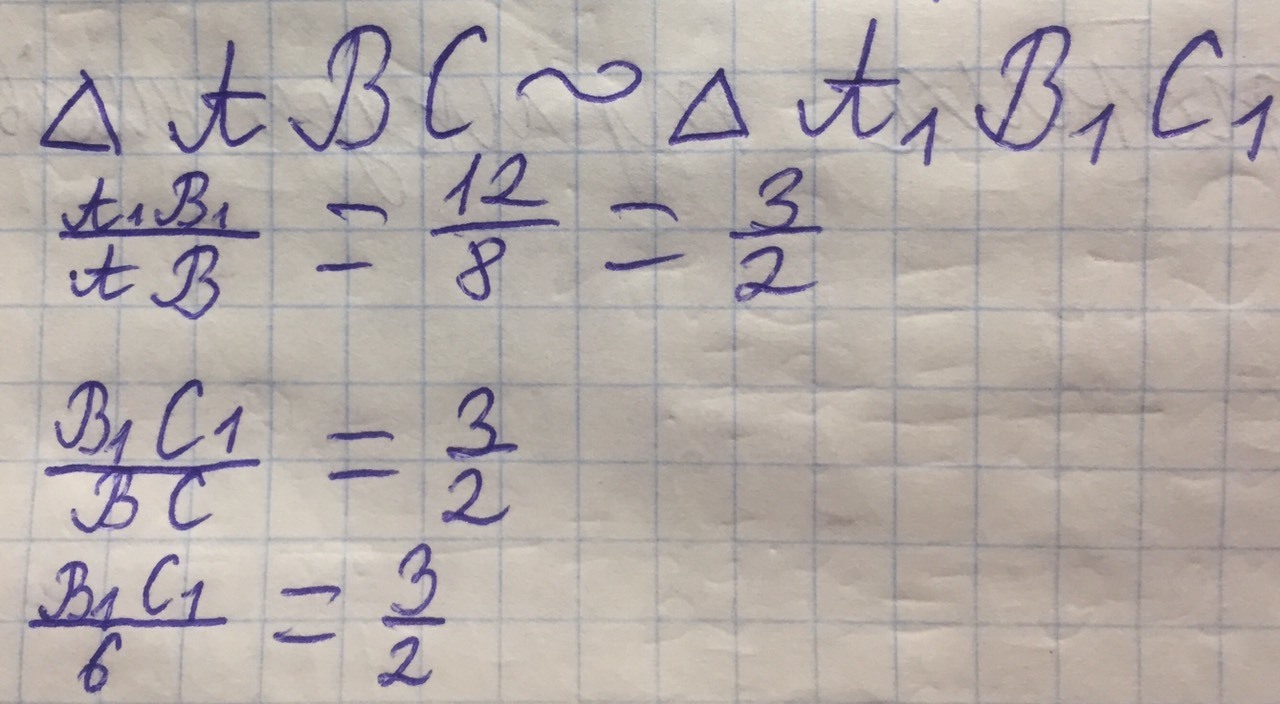 △ ABC ~ △ A₁B₁C₁
A₁B₁/AB = 12/8 = 3/2
B₁C₁/BC = 3/2
B₁C₁/6 = 3/2